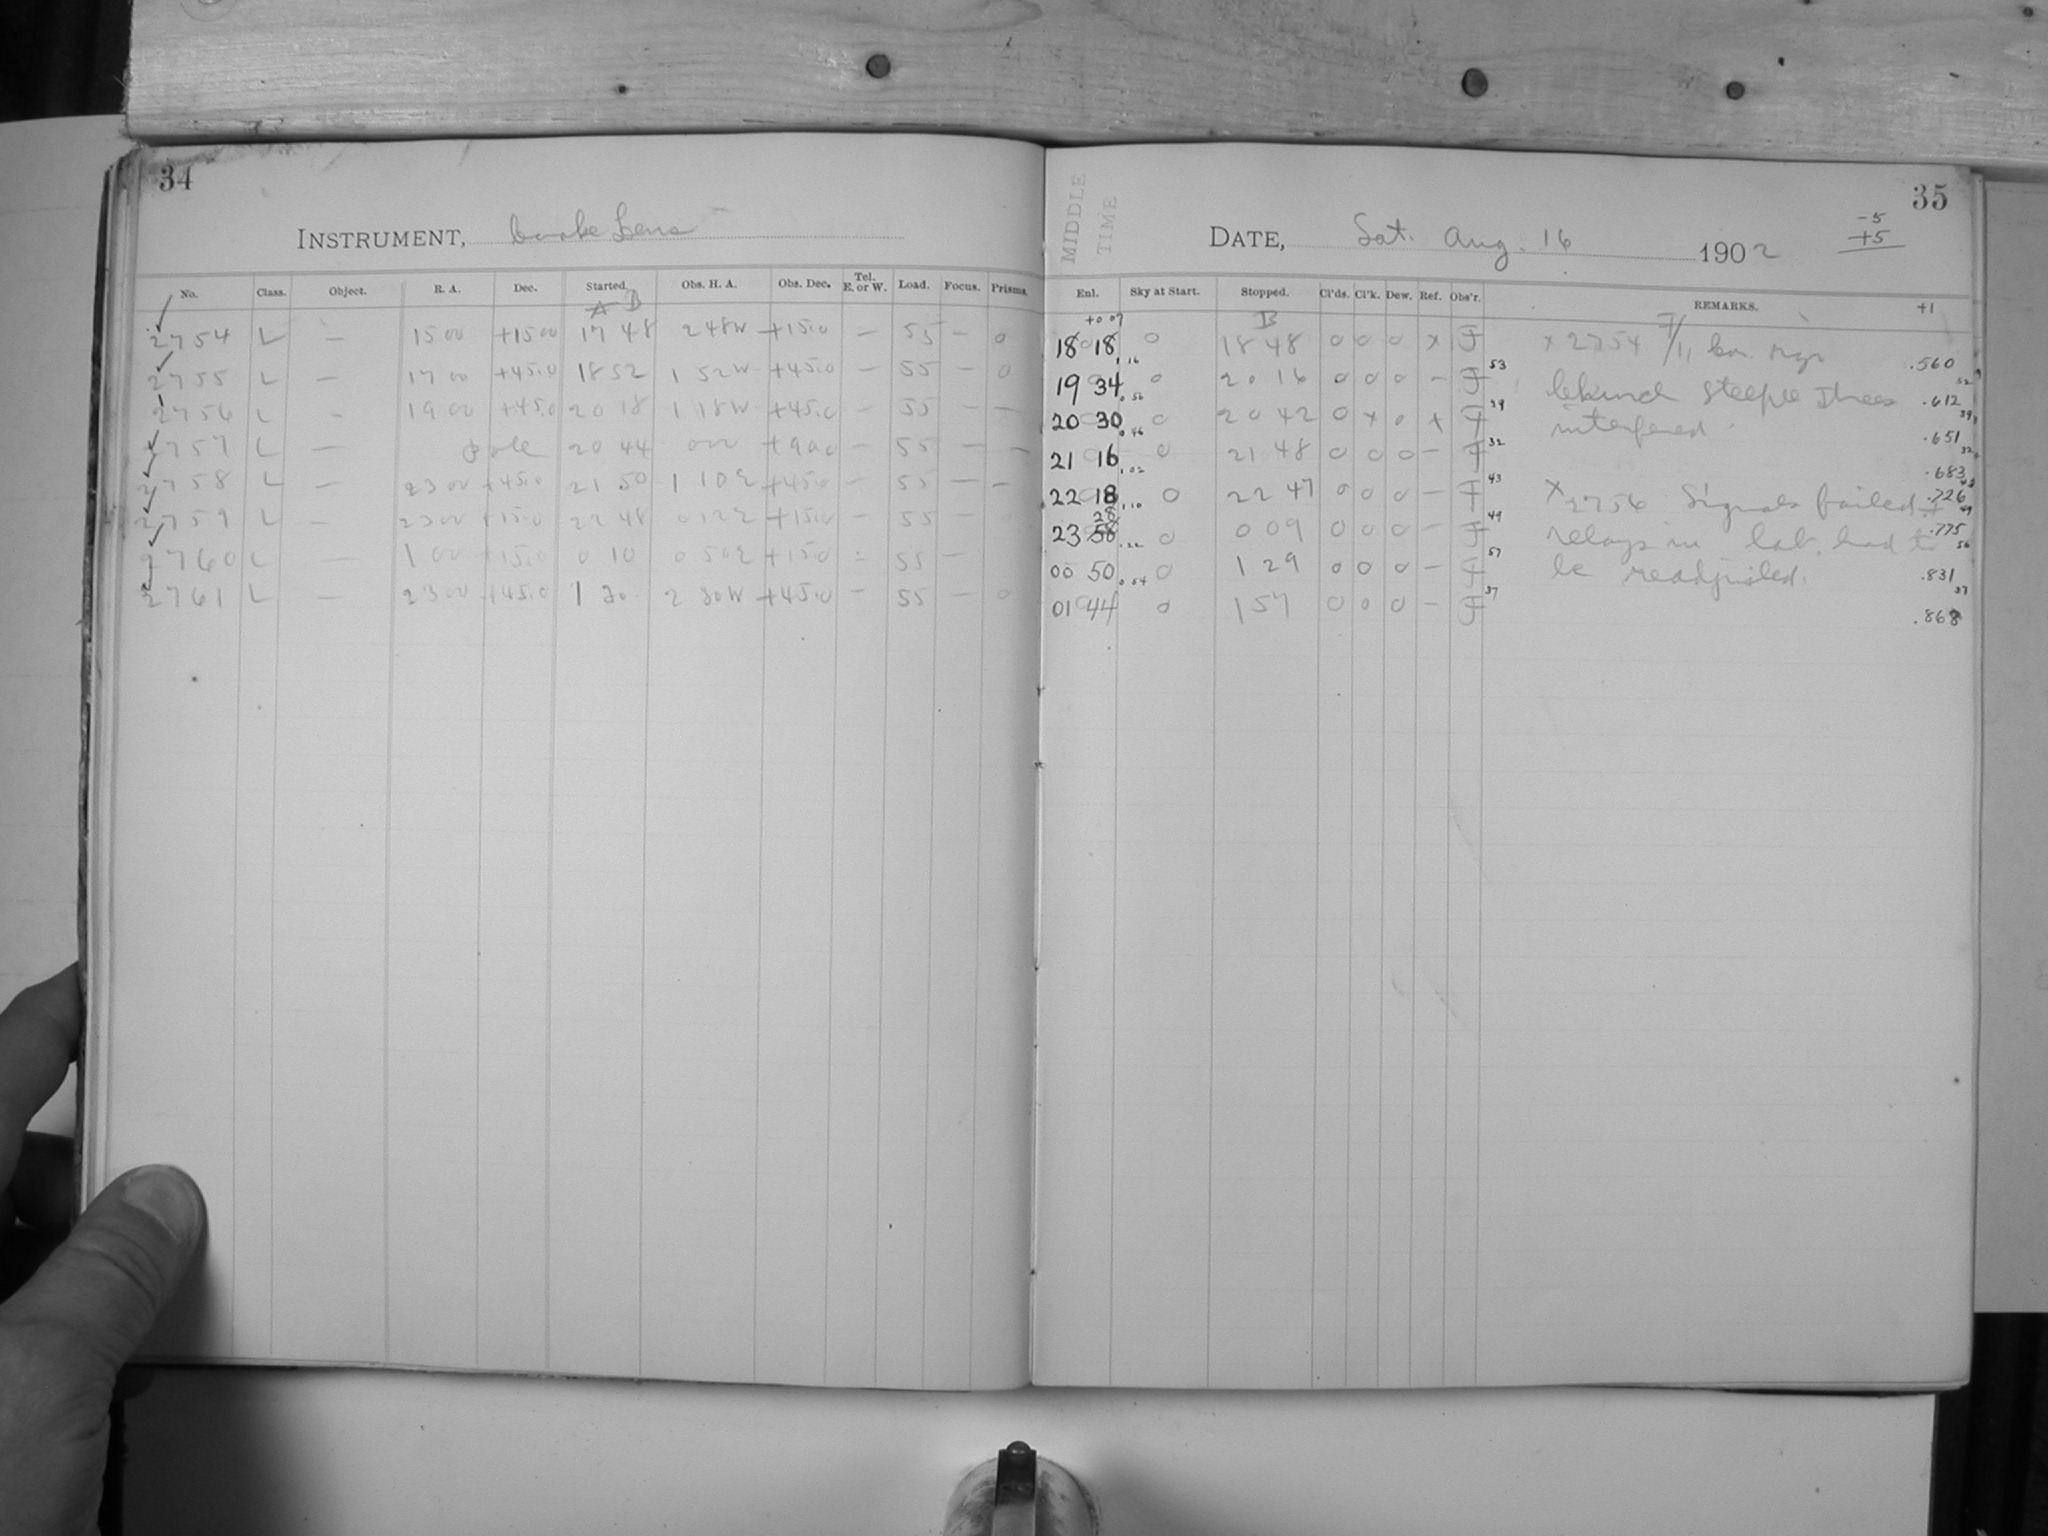 34
INSTRUMENT, Cooke Lens
No. Class. Object. R. A. Dec. Started. Obs. H. A. Obs. Dec. Tel. E. or W. Load. Focus. Prisms.
A B
2754 L — 15 00 +15 00 17 48 2 48 W +15.0 — 55 — 0
2755 L — 17 00 +45.0 18 52 1 52 W +45.0 — 55 — 0
2756 L — 19 00 +45.0 20 18 1 18 W +45.0 — 55 — —
2757 L — Pole 20 44 +90.0 — 55 — —
2758 L — 23 00 +45.0 21 50 1 10 E +45.0 — 55 — —
2759 L — 23 00 +15.0 22 48 0 12 E +15.0 — 55 — 0
2760 L — 1 00 +15.0 0 10 0 50 E +15.0 — 55 —
2761 L — 23 00 +45.0 1 30 2 30 W +45.0 — 55 — 0
35
MIDDLE TIME
DATE, Sat. Aug. 16 1902
-5
+5
Enl. Sky at Start. Stopped. Cl'ds. Cl'k. Dew. Ref. Obs'r. REMARKS. +1
+0 07 B
18 18 0 18 48 0 0 0 x F x 2754 .560
1.16 53 52
19 34 0 20 16 0 0 0 — F behind steeple trees .612
0.56 39 39
20 30 0 20 42 0 x 0 x F interfered. .651
0.46 32 32
21 16 0 21 48 0 0 0 — F .683
1.02 43 43
22 18 0 22 47 0 0 0 — F x 2756 Signals failed .726
1.10 28 49 49
23 58 0 0 09 0 0 0 — F relays in lab. had to .775
.22 57 56
00 50 0 1 29 0 0 0 — F be readjusted. .831
0.54 37 37
01 44 0 1 57 0 0 0 — F .868